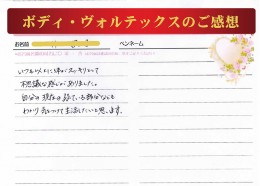 ボディ・ヴォルテックスのご感想
お名前
ペンネーム
いつも以上に体がスッキリとして
不思議な感じがありました。
自分の現在の疲れている部分なども
わかり 気をつけて生活したいと思います。